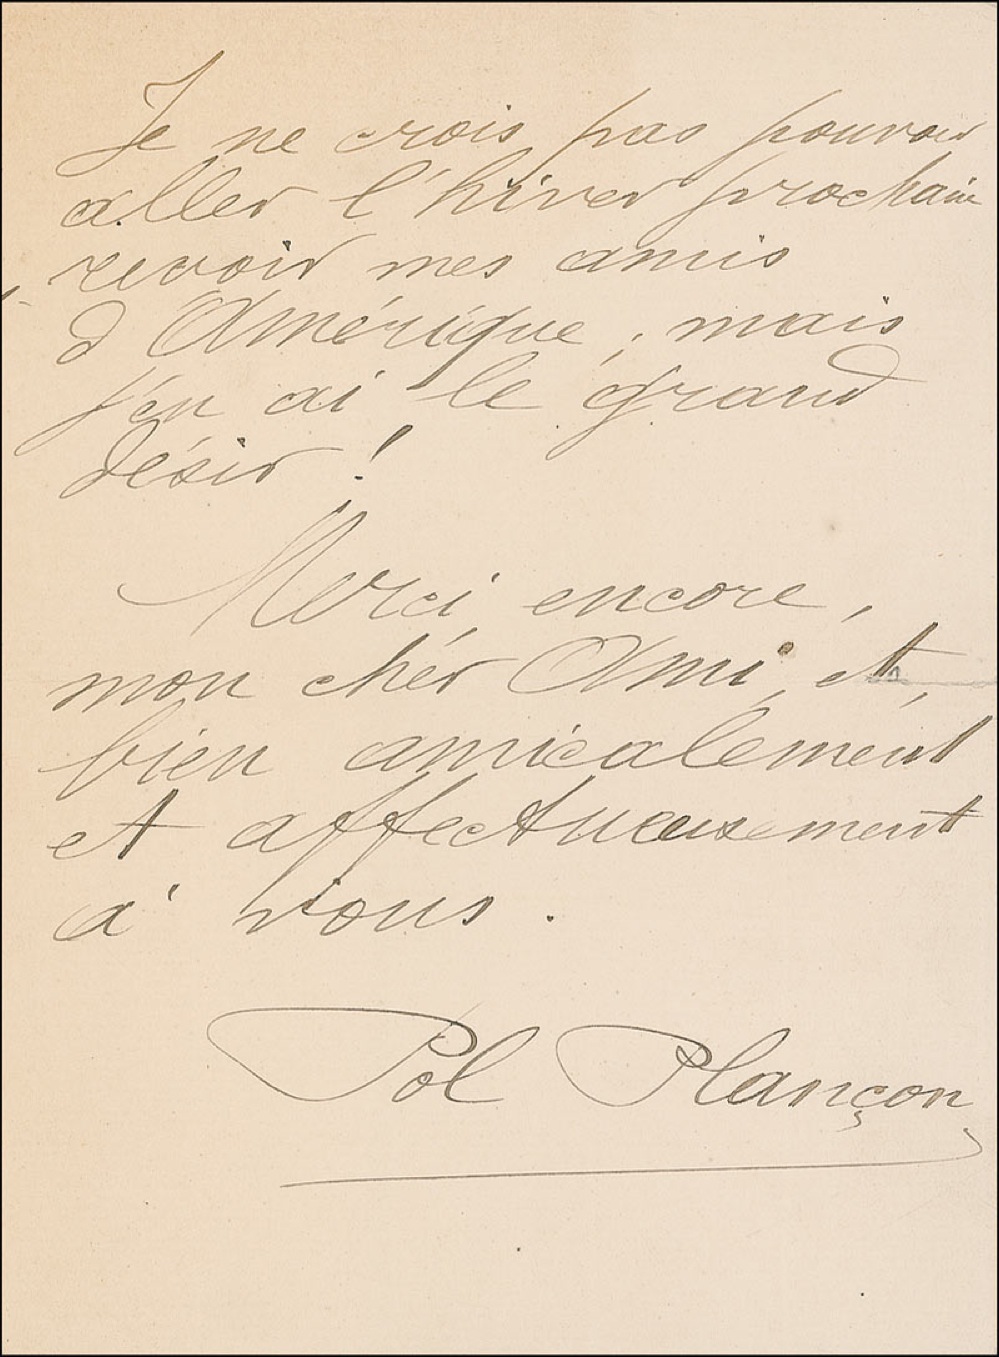 Je ne crois pas pouvoir
aller l'hiver prochain
revoir mes amis
d'Amérique, mais
j'en ai le grand
désir !
Merci encore,
mon cher Ami, et,
bien amicalement
et affectueusement
à vous.
Pol Plançon